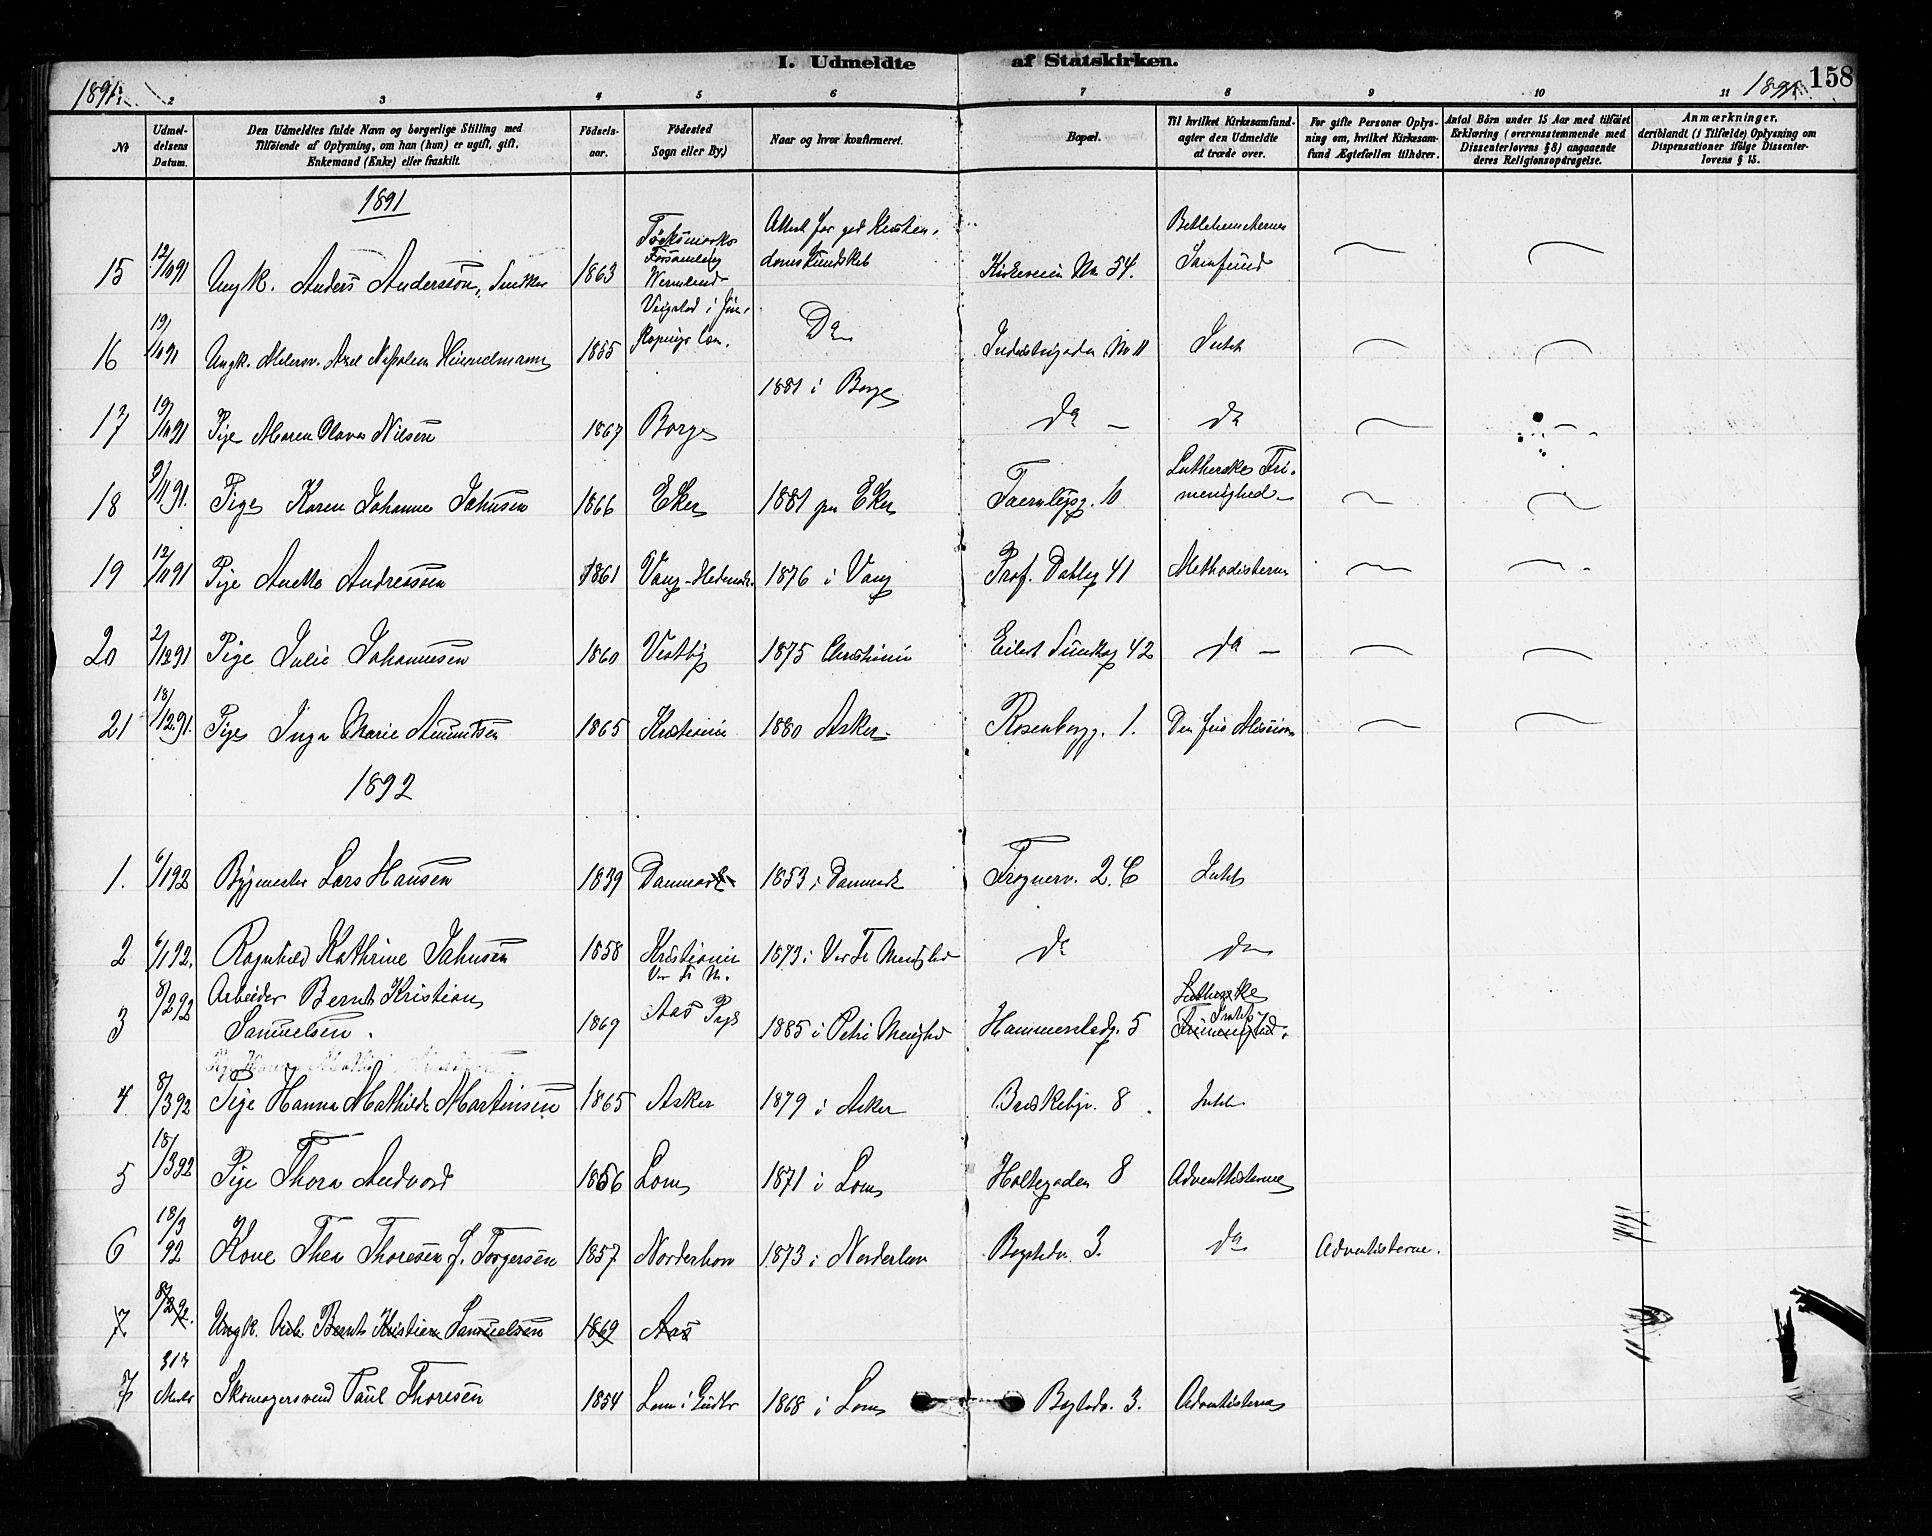 I. Udmeldte af Statskirken.
158
1891. 1891.
2 3 4 5 6 7 8 9 10 11
№
Udmeldelsens Datum.
Den Udmeldtes fulde Navn og borgerlige Stilling med Tilföiende af Oplysning, om han (hun) er ugift, gift, Enkemand (Enke) eller fraskilt.
Födselsaar.
Födested Sogn eller By.)
Naar og hvor konfirmeret.
Bopæl.
Til hvilket Kirkesamfund agter den Udmeldte at træde over.
For gifte Personer Oplysning om, hvilket Kirkesamfund Ægtefællen tilhörer.
Antal Börn under 15 Aar med tilföiet Erklæring (overensstemmende med Dissenterlovens § 8) angaaende deres Religionsopdragelse.
Anmærkninger, deriblandt (i Tilfælde) Oplysning om Dispensationer ifölge Dissenterlovens § 15.
1891
15 12/10 91 Ungk. Anders Andersson, Snedker 1863 Töcksmarks Forsamling Wermland Attest for god Kristendomskundskab Kirkeveien No 54. Bethlehemiternes Samfund
16 19/10 91 Ungk. Axel 1855 Do Industrigaden No 11 Intet
17 19/10 91 Pige Maren Olava Nilsen 1867 Borge 1881 i Borge do - do
18 9/11 91. Pige Karen Johanne Jahnsen 1866 Eker 1881 paa Eker 10 Lutherske Frimenighed -
19 12/11 91 Pige Anette Andreassen 1861 Vang - Hedemark. 1876 i Vang Prof. Dahlsg 41 Methodisterne
20 2/12 91 Pige Julie Johannesen 1860 Vestby 1875 Christiania Eilert Sundtsg 42 do -
21 18/12 91. Pige Inga Marie Amundsen 1865 Kristiania 1880 Asker - Rosenborgg. 1. Den frie Mission
1892
1. 6/1 92 Bygmester Lars Hansen 1839 Danmark 1853 i Danmark Frognerv. 2. C Intet
2 6/1 92. Ragnhild Kathrine Jahnsen 1858 Kristiania Vor Fr M. 1873 i Vor Fr Menighed do do
3 8/2 92 Arbeider Bernt Kristian Samuelsen. 1869 Aas Pgd 1885 i Petri Menighed Hammerstadg. 5 Lutherske Frimenighed. Intet
4 8/3 92 Pige Hanna Mathilde Martinsen 1865 Asker 1879 i Asker Briskebyv. 8. Intet.
5 18/3 92 Pige Thora Andvord 1856 Lom 1871 i Lom Holtegaden 8 Adventisterne
6 18/3 92 Kone Thea Thoresen f. Torgersen 1857 Norderhov 1873 i Norderhov Bogstadv. 3. do Adventisterne.
7 8/2 92. Ungk. Arb. Bernt Kristian Samuelsen 1869 Aas
7 31te Marts Skomagersvend Paul Thoresen 1854 Lom i Gudbr 1868 i Lom Bogstadv. 3. Adventisterne